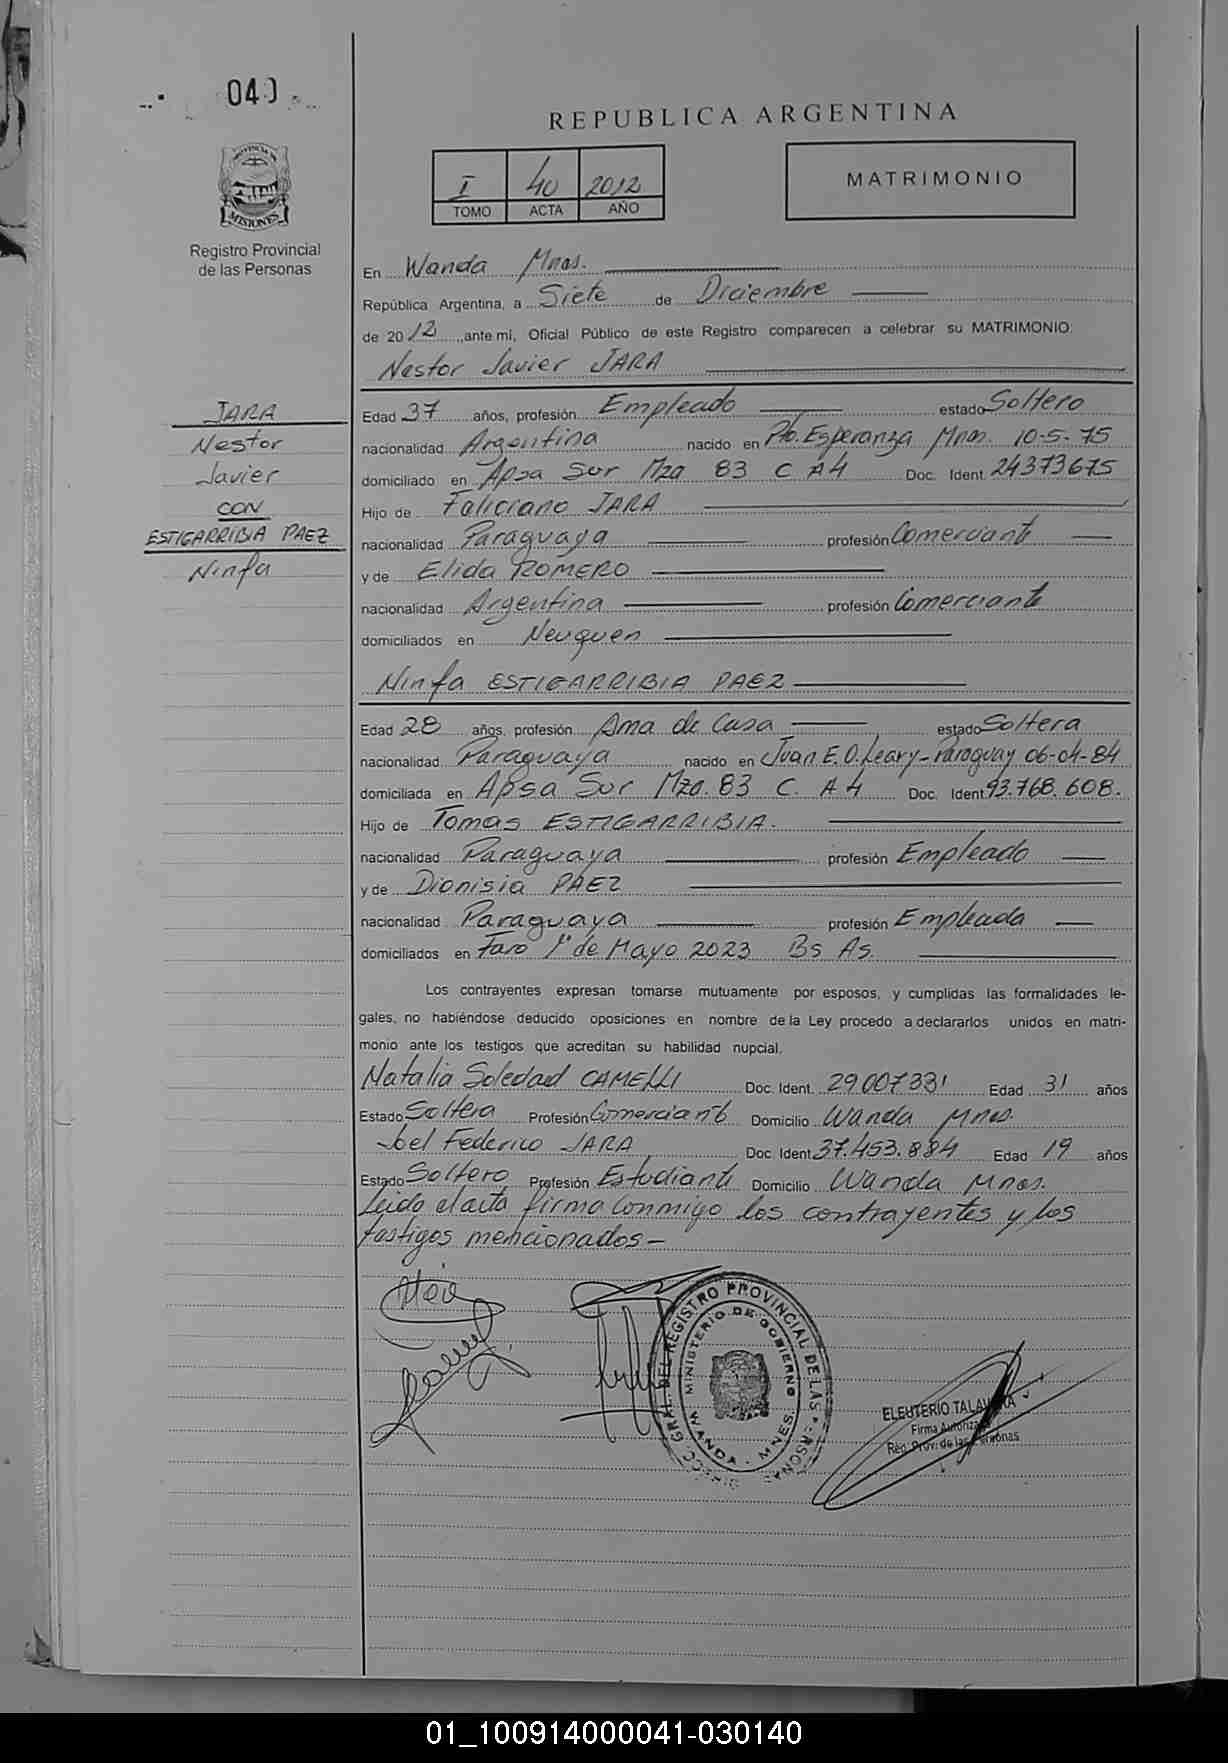 040
REPUBLICA ARGENTINA
I 40 2012
TOMO ACTA AÑO
MATRIMONIO
PROVINCIA DE
MISIONES
Registro Provincial
de las Personas
En Wanda Mnes.
República Argentina, a Siete de Diciembre
de 2012, ante mí, Oficial Público de este Registro comparecen a celebrar su MATRIMONIO:
Nestor Javier JARA
JARA
Nestor
Javier
CON
ESTIGARRIBIA PAEZ
Ninfa
Edad 37 años, profesión Empleado estado Soltero
nacionalidad Argentina nacido en Pto. Esperanza Mnes. 10-5-75
domiciliado en Apsa Sur Mza 83 C A4 Doc. Ident. 24373675
Hijo de Faliciano JARA
nacionalidad Paraguaya profesión Comerciante
y de Elida ROMERO
nacionalidad Argentina profesión Comerciante
domiciliados en Neuquen
Ninfa ESTIGARRIBIA PAEZ
Edad 28 años, profesión Ama de Casa estado Soltera
nacionalidad Paraguaya nacido en Juan E. O. Leary-Paraguay 06-04-84
domiciliada en Apsa Sur Mza. 83 C. A 4 Doc. Ident. 93.768.608.
Hijo de Tomas ESTIGARRIBIA.
nacionalidad Paraguaya profesión Empleado
y de Dionisia PAEZ
nacionalidad Paraguaya profesión Empleada
domiciliados en Faro 1º de Mayo 2023 Bs As.
Los contrayentes expresan tomarse mutuamente por esposos, y cumplidas las formalidades le-
gales, no habiéndose deducido oposiciones en nombre de la Ley procedo a declararlos unidos en matri-
monio ante los testigos que acreditan su habilidad nupcial.
Natalia Soledad CAMELLI Doc. Ident. 29.007331 Edad 31 años
Estado Soltera Profesión Comerciante Domicilio Wanda Mnes.
Joel Federico JARA Doc. Ident. 37.453.884 Edad 19 años
Estado Soltero Profesión Estudiante Domicilio Wanda Mnes.
Leido el acta firma conmigo los contrayentes y los
testigos mencionados-
GRAL. DEL REGISTRO PROVINCIAL DE LAS PERSONAS
MINISTERIO DE GOBIERNO
WANDA - MNES.
ELEUTERIO TALAVERA
Firma Autorizada
Reg. Prov. de las Personas
01_100914000041-030140